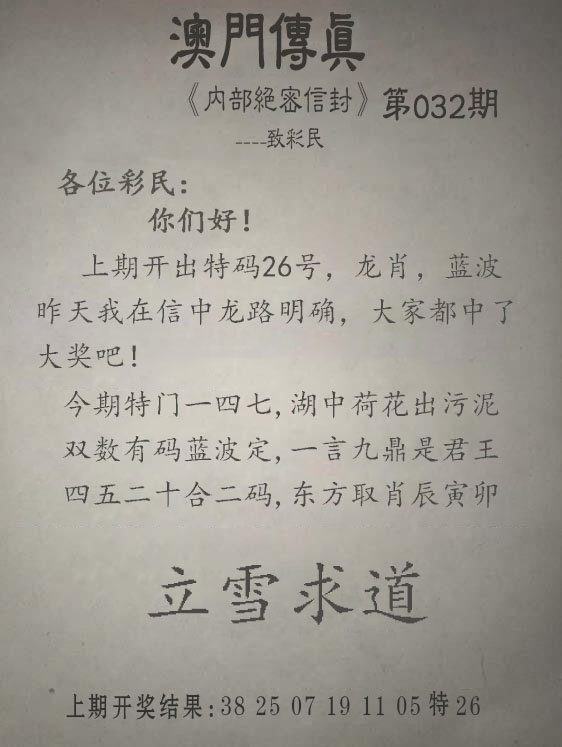 澳門傳真
《内部絕密信封》第032期
----致彩民
各位彩民：
你们好！
上期开出特码26号，龙肖，蓝波
昨天我在信中龙路明确，大家都中了
大奖吧！
今期特门一四七,湖中荷花出污泥
双数有码蓝波定,一言九鼎是君王
四五二十合二码,东方取肖辰寅卯
立雪求道
上期开奖结果:38 25 07 19 11 05 特 26